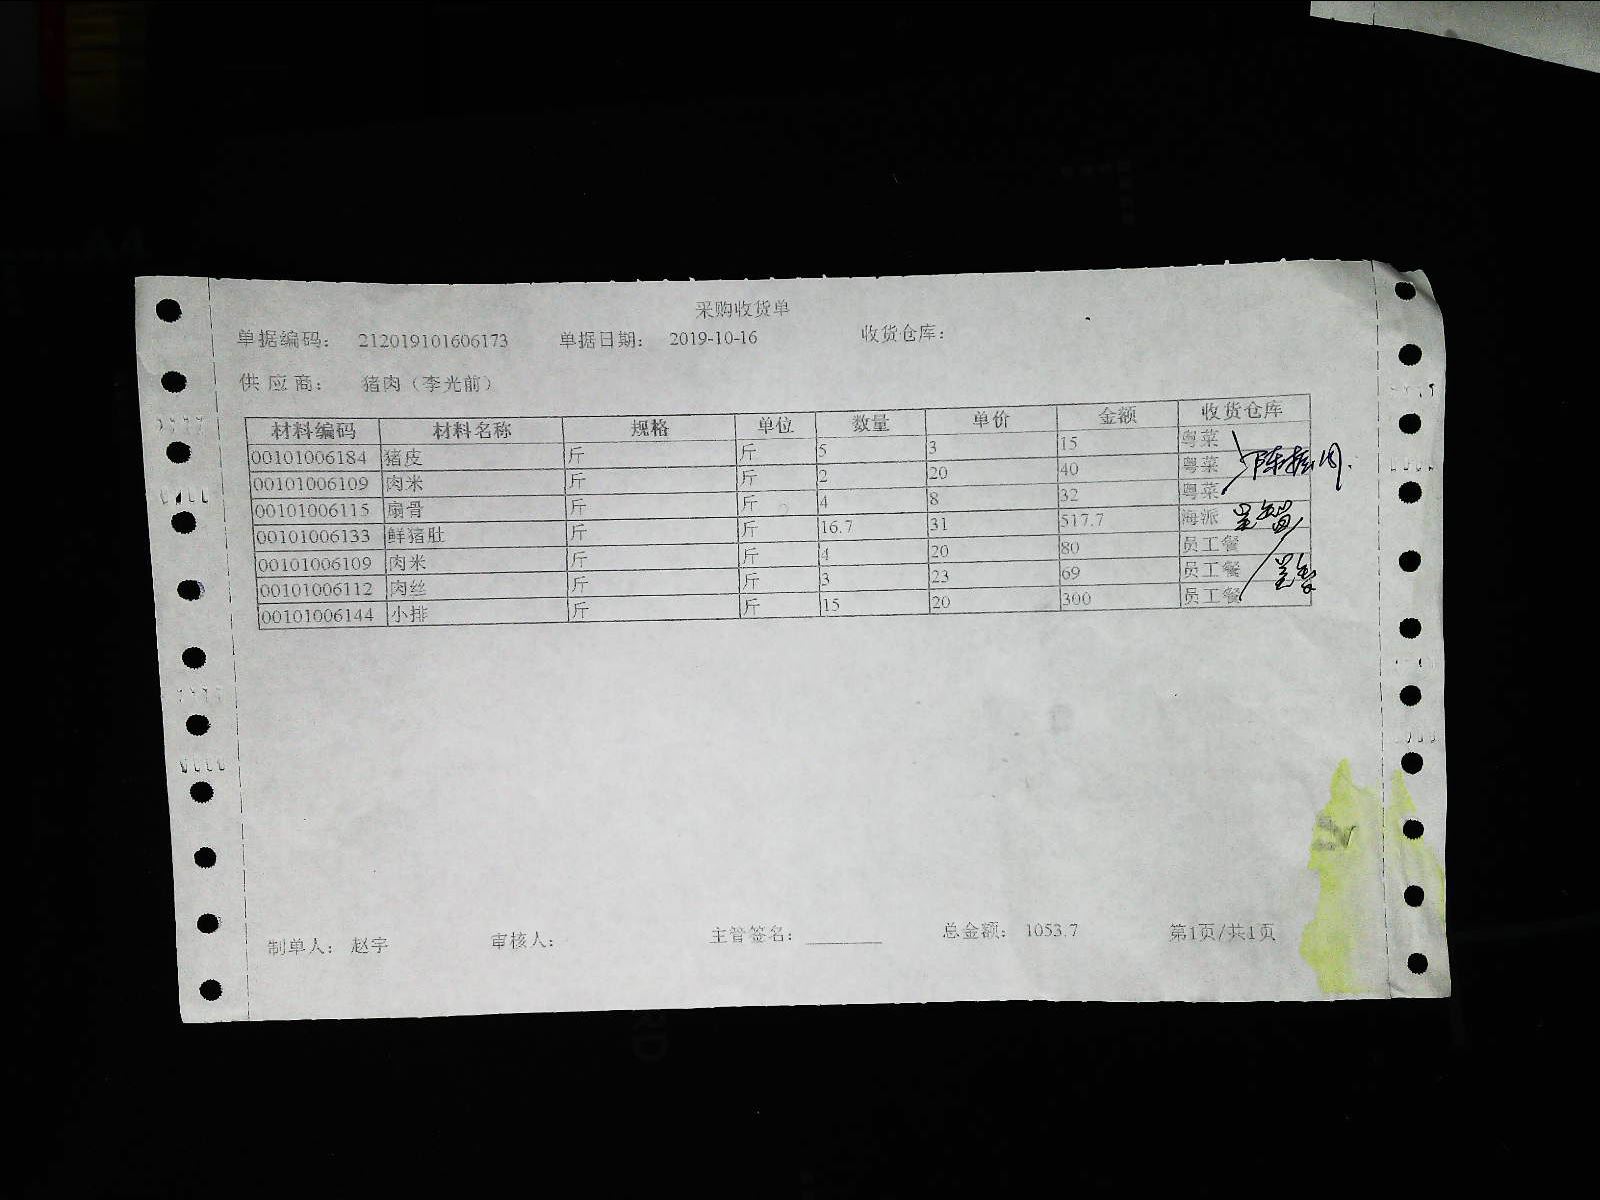 采购收货单
单据编码： 212019101606173 单据日期： 2019-10-16 收货仓库：
供 应 商： 猪肉（李光前）
材料编码 材料名称 规格 单位 数量 单价 金额 收货仓库
00101006184 猪皮 斤 斤 5 3 15 粤菜
00101006109 肉米 斤 斤 2 20 40 粤菜
00101006115 扇骨 斤 斤 4 8 32 粤菜
00101006133 鲜猪肚 斤 斤 16.7 31 517.7 海派
00101006109 肉米 斤 斤 4 20 80 员工餐
00101006112 肉丝 斤 斤 3 23 69 员工餐
00101006144 小排 斤 斤 15 20 300 员工餐
制单人： 赵宇 审核人： 主管签名： 总金额： 1053.7 第1页/共1页